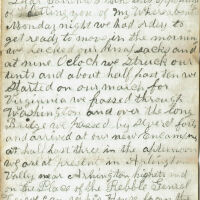 of telling you of my whereabout
Monday night we had orders to
get ready to move in the morning
we packed our knap sacks and
at nine Oclock we Struck our
tents and about half past ten we
Started on our march for
Virginnia we passed through
Washington and over the long
Bridge we passed by several forts
and arrived at our new Encampment
at half past three in the afternoon
we are at present in Arlington
Valley near Arlington heights and
on the Place of the Rebble General